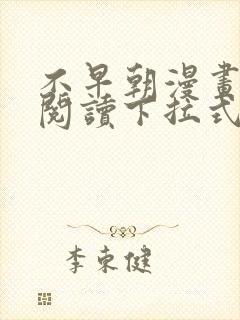 不早朝漫畫
閱讀下拉式
李東健